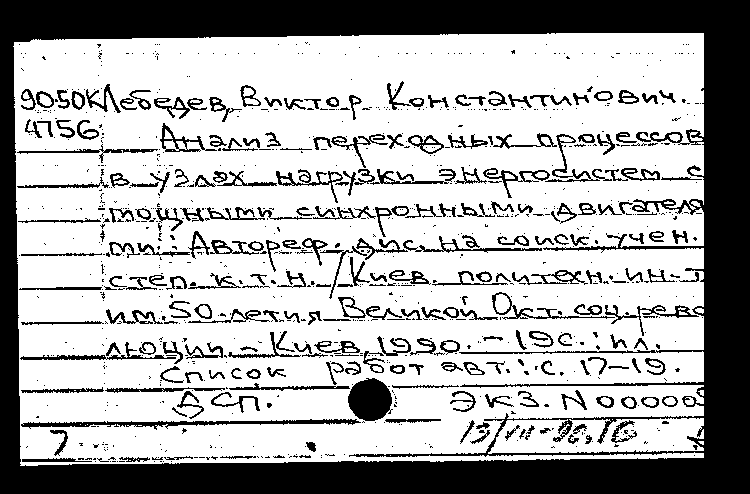 90-50К Лебедев, Виктор Константинович.
4756 Анализ переходных процессов
в узлах нагрузки энергосистем с
мощными синхронными двигателя
ми : Автореф. дис. на соиск. учен.
степ. к. т. н. / Киев. политехн. ин-т
им. 50-летия Великой Окт. соц. рево
люции. - Киев, 1990. - 19с. : ил.
Список работ авт. : с. 17-19.
ДСП. Экз. N 00000
13/VII-90.